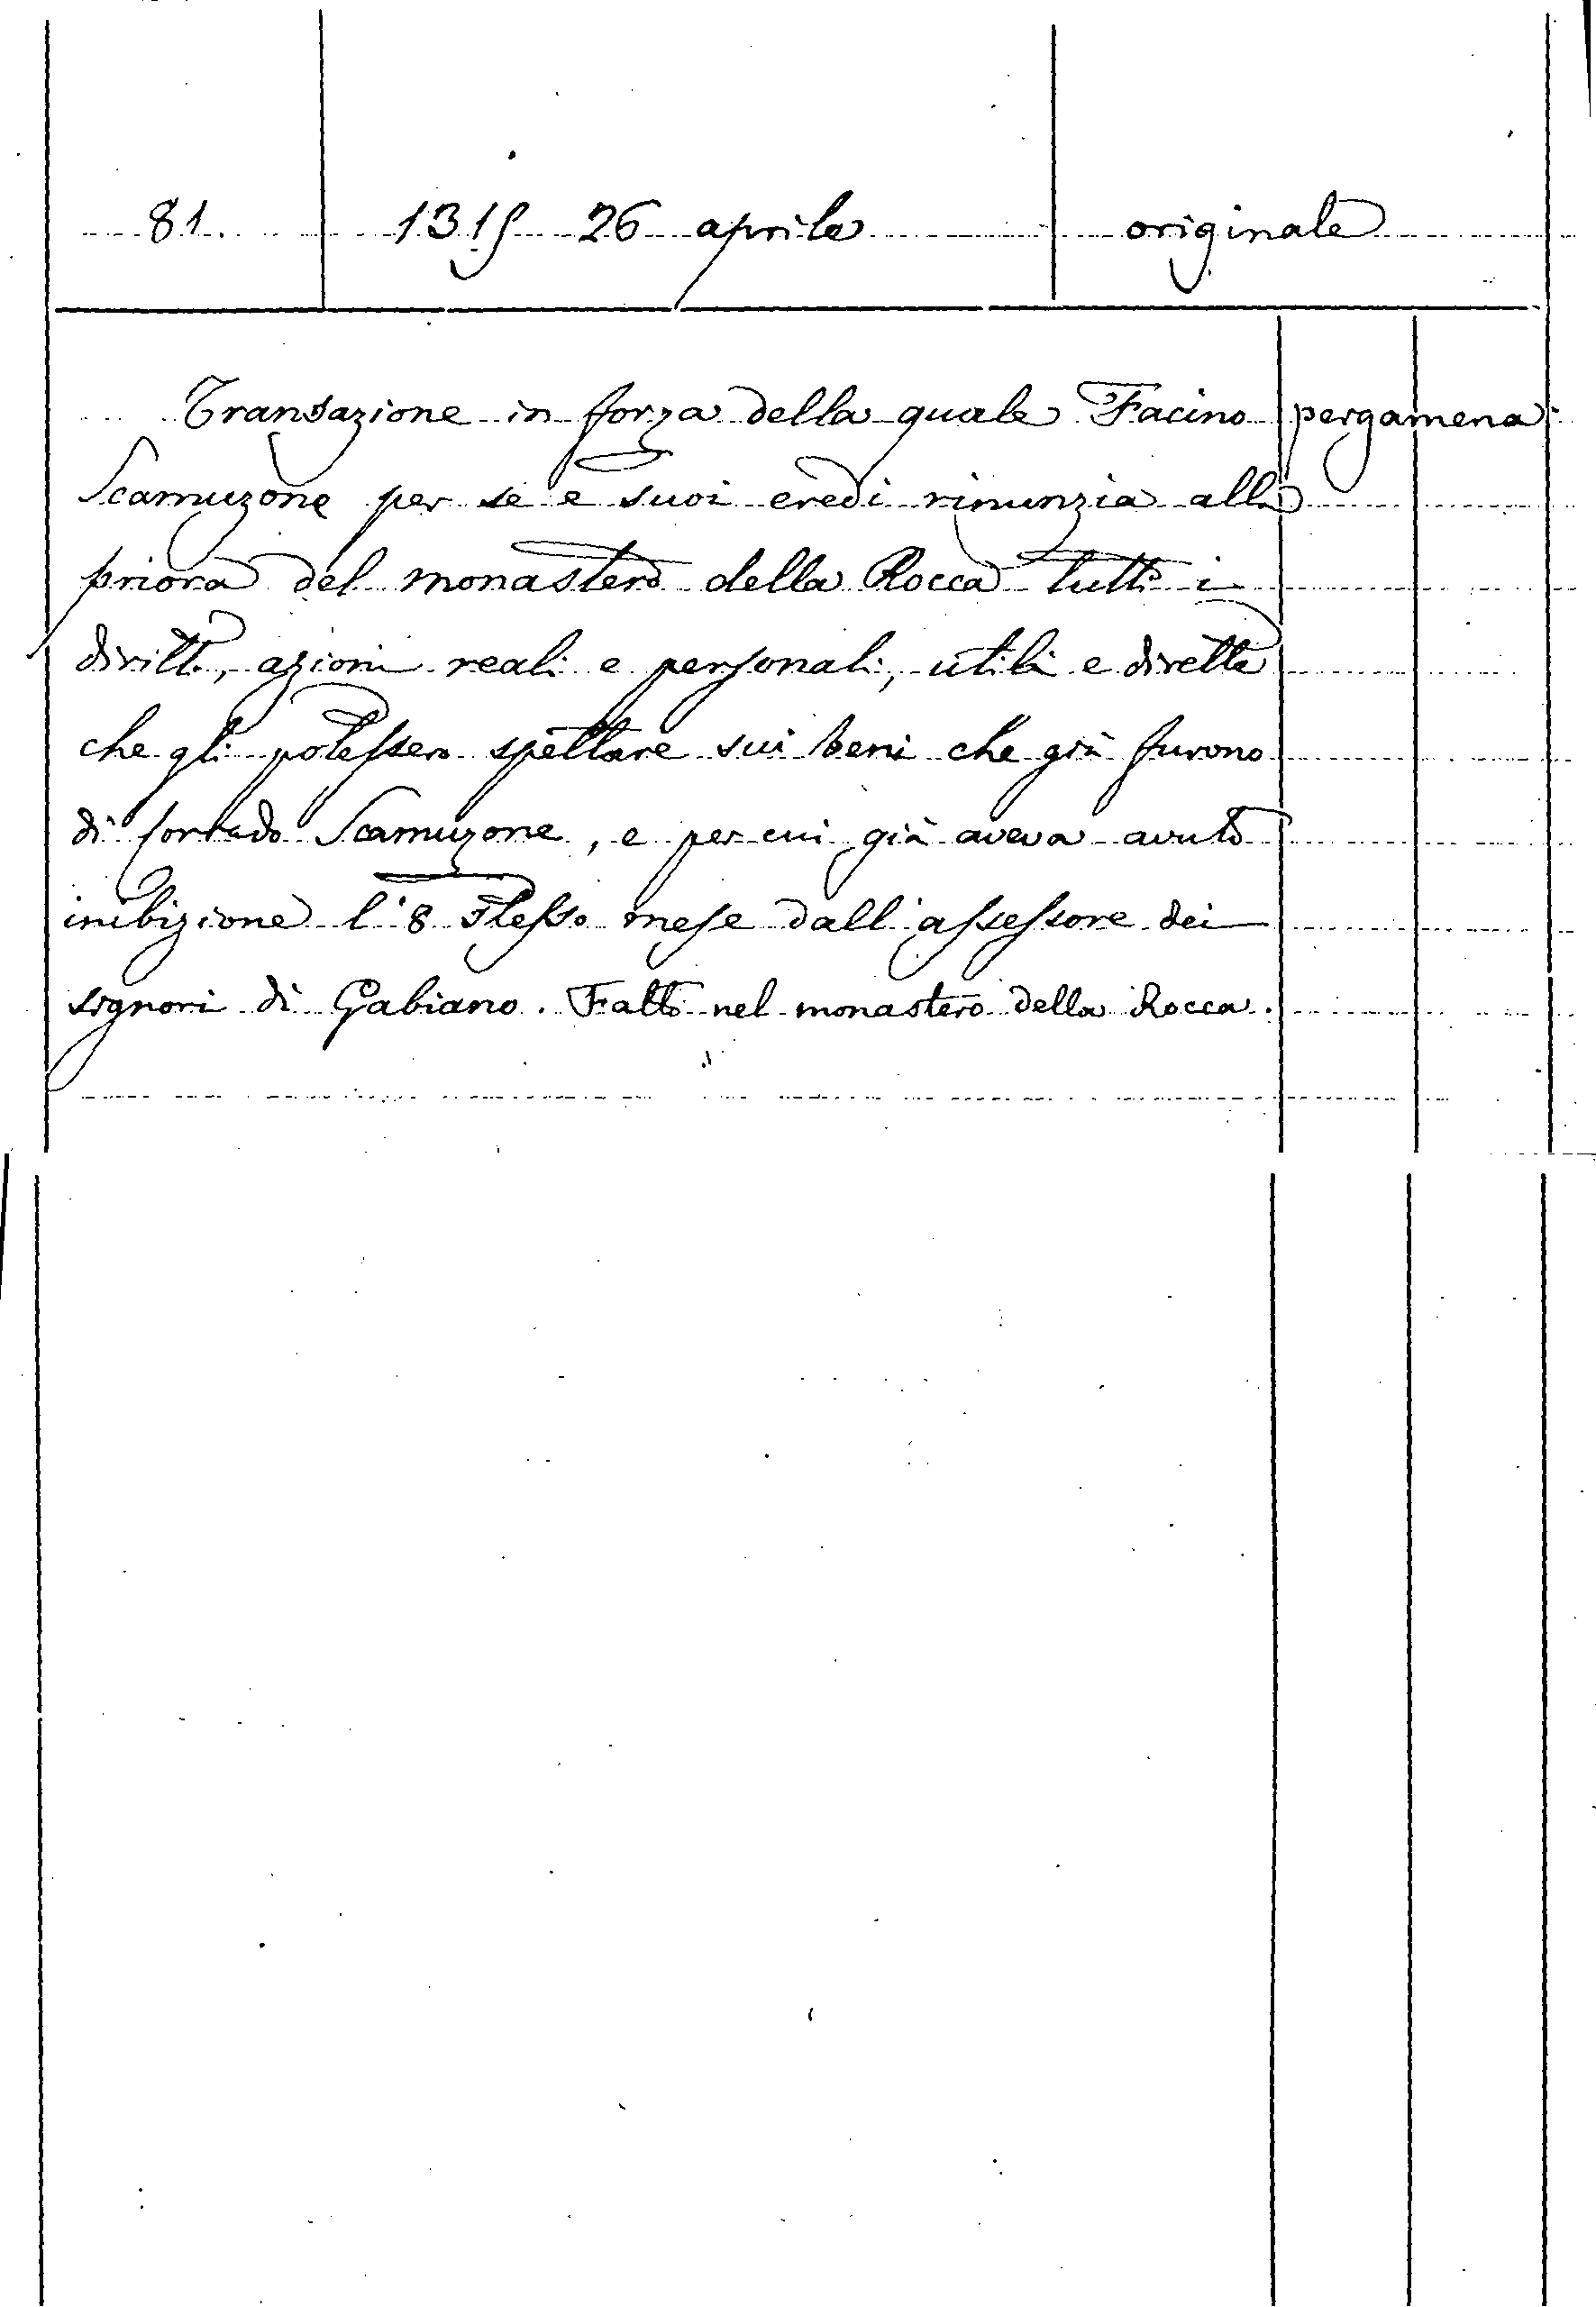 81. 1315 26 aprile originale
Transazione in forza della quale Facino pergamena
Scamuzone per se e suoi eredi rinunzia alla
priora del monastero della Rocca tutti i
diritti, azioni reali e personali, utili e dirette
che gli potessero spettare sui beni che già furono
di Corrado Scamuzone, e per cui già aveva avuto
inibizione l'8 stesso mese dall'assessore dei
signori di Gabiano. Fatto nel monastero della Rocca.